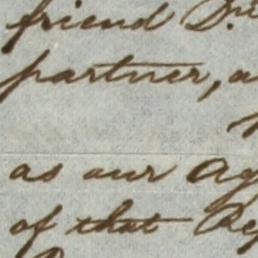 friend Dr
partner, a
as our Ag
of that Re